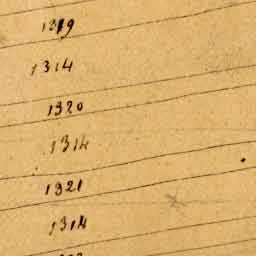 1319
1314
1320
1314
1321
1314